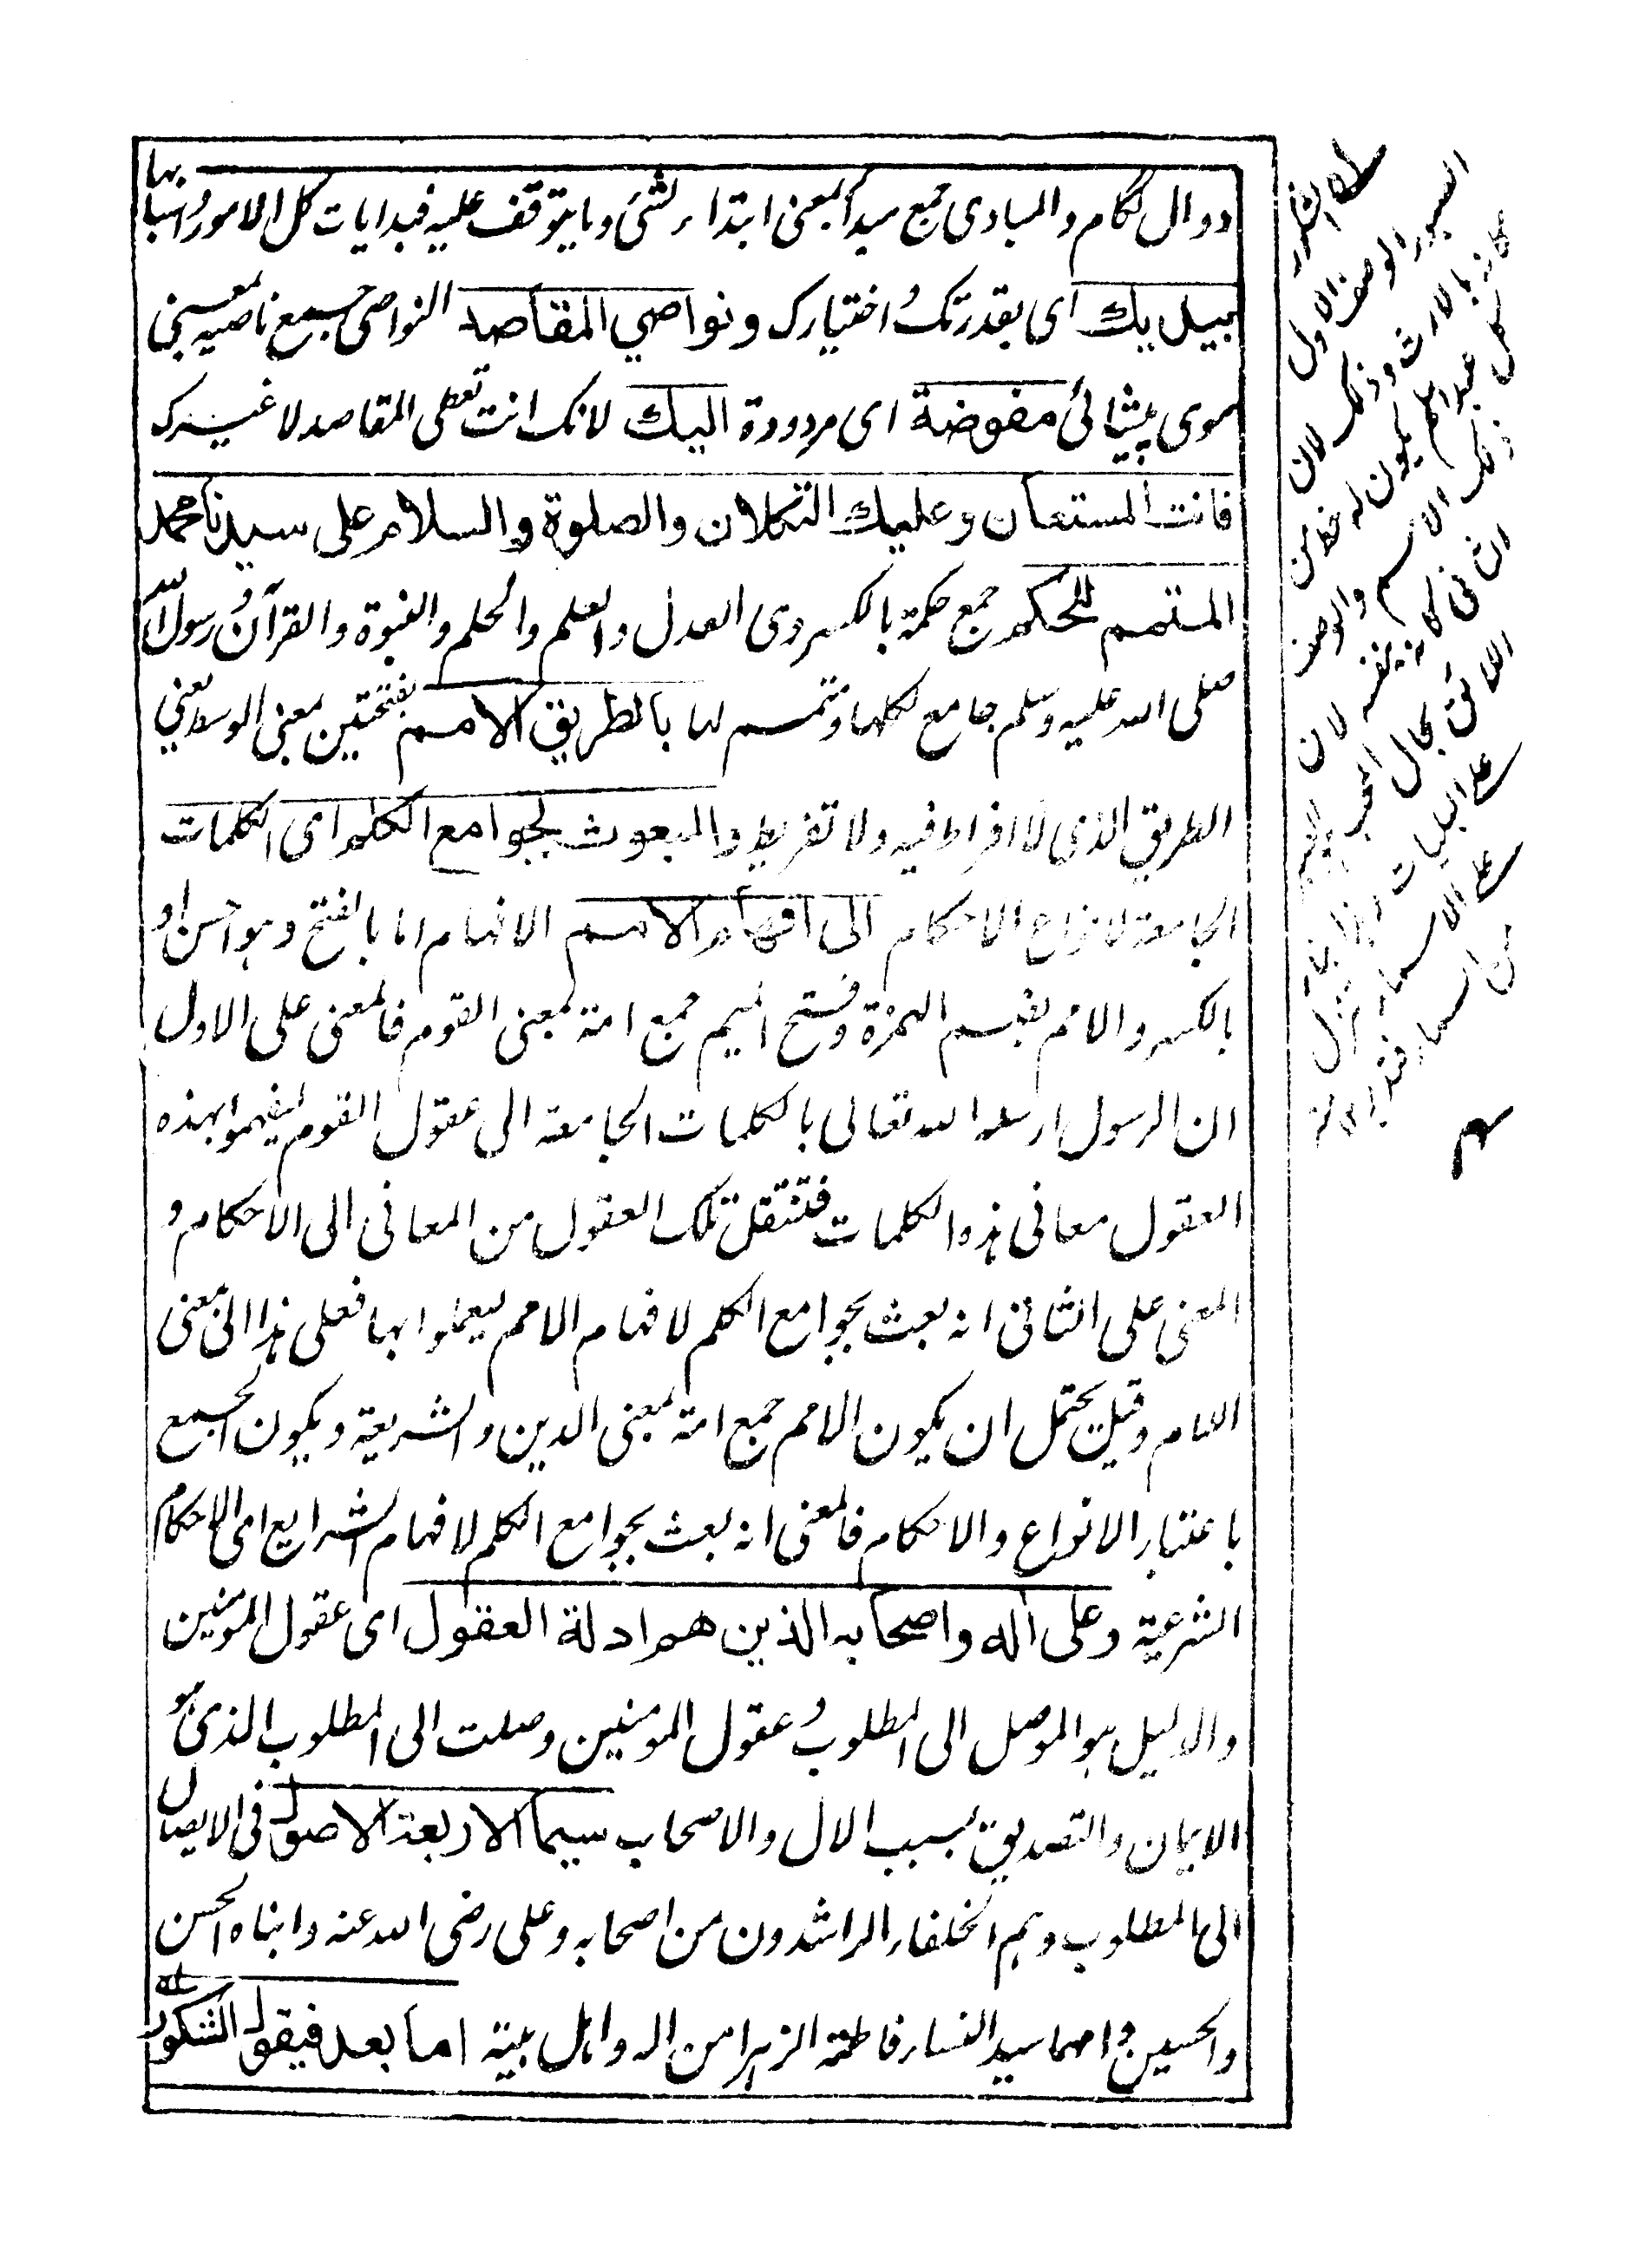 دوال لگام والمبادى جمع مبدأ بمعنى ابتداء لشئ وما يتوقف عليه فبدايات كل الامور واسبابها
بيديك اى بقدرتك واختيارك ونواصي المقاصد النواصى جمع ناصيه بمعنى
موى پیشانئ مفوضة اى مردودة اليك لانك انت تعطى المقاصد لا غيرك
فانت المستعان وعليك التكلان والصلوة والسلام على سيدنا محمد
المتمم للحكم جمع حكمة بالكسر وى العدل والعلم والحلم والنبوة والقرآن ورسول الله
صلى الله عليه وسلم جامع لكلها ومتمم لها بالطريق الامم بفتحتين بمعنى الوسط يعني
الطريق الذى لا افراط فيه ولا تفريط والمبعوث بجوامع الكلم اى الكلمات
الجامعة لانواع الاحكام الى افهام الامم الافهام اما بالفتح وهو احسن او
بالكسر والامم بضم الهمزة وفتح الميم جمع امة بمعنى القوم فالمعنى على الاول
ان الرسول ارسله الله تعالى بالكلمات الجامعة الى عقول القوم ليفهموا بهذه
العقول معانى هذه الكلمات فتنتقل تلك العقول من المعانى الى الاحكام و
المعنى على الثانى انه بعث بجوامع الكلم لافهام الامم ليعملوا بها فعلى هذا الى بمعنى
اللام وقيل يحتمل ان يكون الامم جمع امة بمعنى الدين والشريعة ويكون الجمع
باعتبار الانواع والاحكام فالمعنى انه بعث بجوامع الكلم لافهام الشرايع اى الاحكام
الشرعية وعلى آله واصحابه الذين هم ادلة العقول اى عقول المؤمنين
والدليل هو الموصل الى المطلوب وعقول المومنين وصلت الى المطلوب الذى هو
الايمان والتصديق بسبب الال والاصحاب سيما الاربعة الاصول فى الايصال
الى المطلوب وهم الخلفاء الراشدون من اصحابه وعلى رضى الله عنه وابناه الحسن
والحسين وامهما سيد النساء فاطمة الزهرا من اله واهل بيته اما بعد فيقول الشكور
الصبور الوصف الاول
كانه بالارث وذلك لان
عبد العلم يكون له حظ من
ذلك الاسم والوصف
الثانى كانه لنفسه لان
اللائق بحال
على البليات